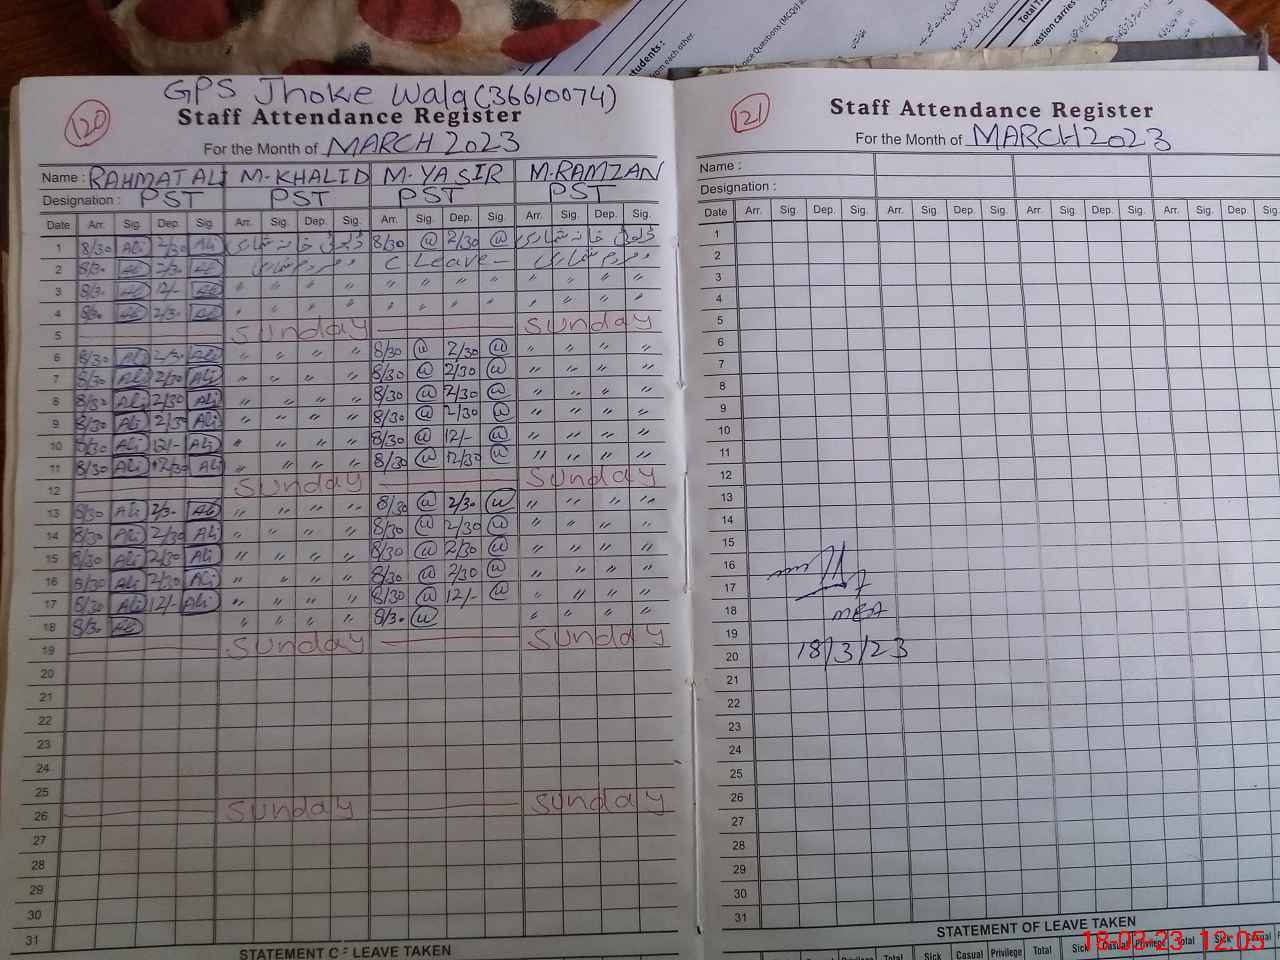 GPS Jhoke Wala (36610074)
120
Staff Attendance Register
For the Month of MARCH 2023
Name : RAHMAT ALI M-KHALID M-YASIR M-RAMZAN
Designation : PST PST PST PST
Date Arr. Sig. Dep. Sig. Arr. Sig. Dep. Sig. Arr. Sig. Dep. Sig. Arr. Sig. Dep. Sig.
1 8/30 Ali 2/30 Ali ڈیوٹی خانہ شماری 8/30 @ 2/30 @ ڈیوٹی خانہ شماری
2 8/30 Ali 2/30 Ali مردم شماری C Leave - مردم شماری
3 8/30 Ali 12/- Ali " " " " " " " " " " " "
4 8/30 Ali 2/30 Ali " " " " " " " " " " " "
5 Sunday Sunday
6 8/30 Ali 2/30 Ali " " " " 8/30 @ 2/30 @ " " " "
7 8/30 Ali 2/30 Ali " " " " 8/30 @ 2/30 @ " " " "
8 8/30 Ali 2/30 Ali " " " " 8/30 @ 2/30 @ " " " "
9 8/30 Ali 2/30 Ali " " " " 8/30 @ 2/30 @ " " " "
10 8/30 Ali 12/- Ali " " " " 8/30 @ 12/- @ " " " "
11 8/30 Ali 12/30 Ali " " " " 8/30 @ 12/30 @ " " " "
12 Sunday Sunday
13 8/30 Ali 2/30 Ali " " " " 8/30 @ 2/30 @ " " " "
14 8/30 Ali 2/30 Ali " " " " 8/30 @ 2/30 @ " " " "
15 8/30 Ali 2/30 Ali " " " " 8/30 @ 2/30 @ " " " "
16 8/30 Ali 2/30 Ali " " " " 8/30 @ 2/30 @ " " " "
17 8/30 Ali 12/- Ali " " " " 8/30 @ 12/- @ " " " "
18 8/30 Ali " " " " 8/30 @ " " " "
19 Sunday Sunday
20
21
22
23
24
25
26 Sunday Sunday
27
28
29
30
31
STATEMENT OF LEAVE TAKEN
121
Staff Attendance Register
For the Month of MARCH 2023
Name :
Designation :
Date Arr. Sig Dep. Sig. Arr. Sig. Dep. Sig. Arr. Sig. Dep. Sig. Arr. Sig. Dep.
1
2
3
4
5
6
7
8
9
10
11
12
13
14
15
16
17
18 MEA
19
20 18/3/23
21
22
23
24
25
26
27
28
29
30
31
STATEMENT OF LEAVE TAKEN
Sick Casual Privilege Total Sick Casual Privilege Total Sick Casual
18.03.23 12:05
students :
from each other
Choice Questions (MCQs)
Total
question carries